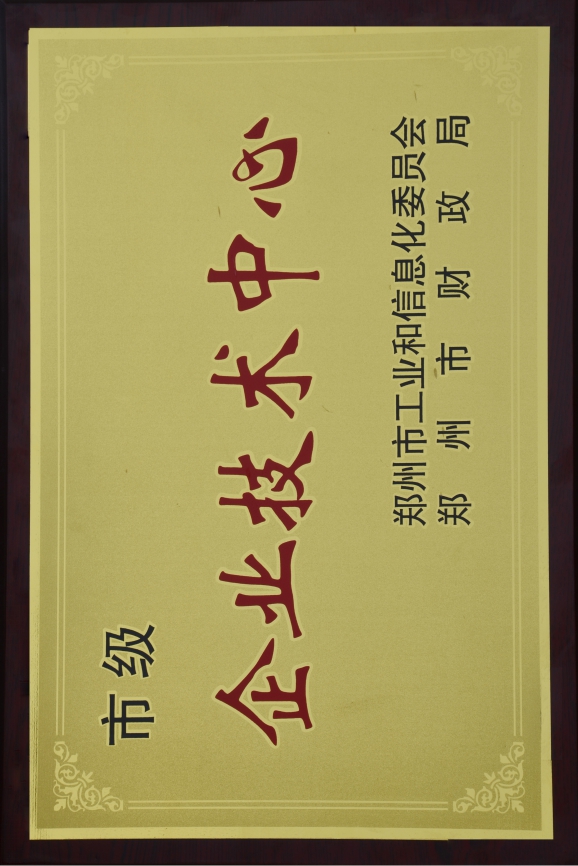 市级
企业技术中心
郑州市工业和信息化委员会
郑州市财政局